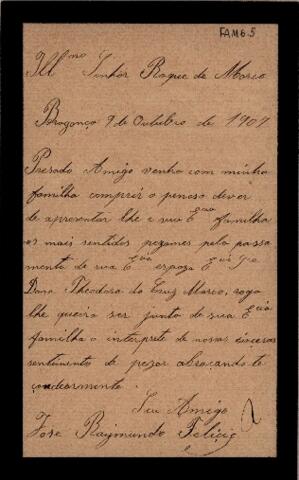 FAM 6.5
Illmo Senhor Roque de Marco
Bragança 9 de Outubro de 1909
Presado Amigo venho com minha
familha comprir o penoso dever
de apresentar lhe e sua Ecia familha
os mais sentidos pezames pelo passa
mento de sua Ecia espoza Ecia Sra
Dona Theodora da Cruz Marco, rogo
lhe queira ser junto de sua Ecia
familha o interprete de nossos sinceros
sentimento de pezar abracando-te
condearmente.
Seu Amigo
José Raymundo Felicio